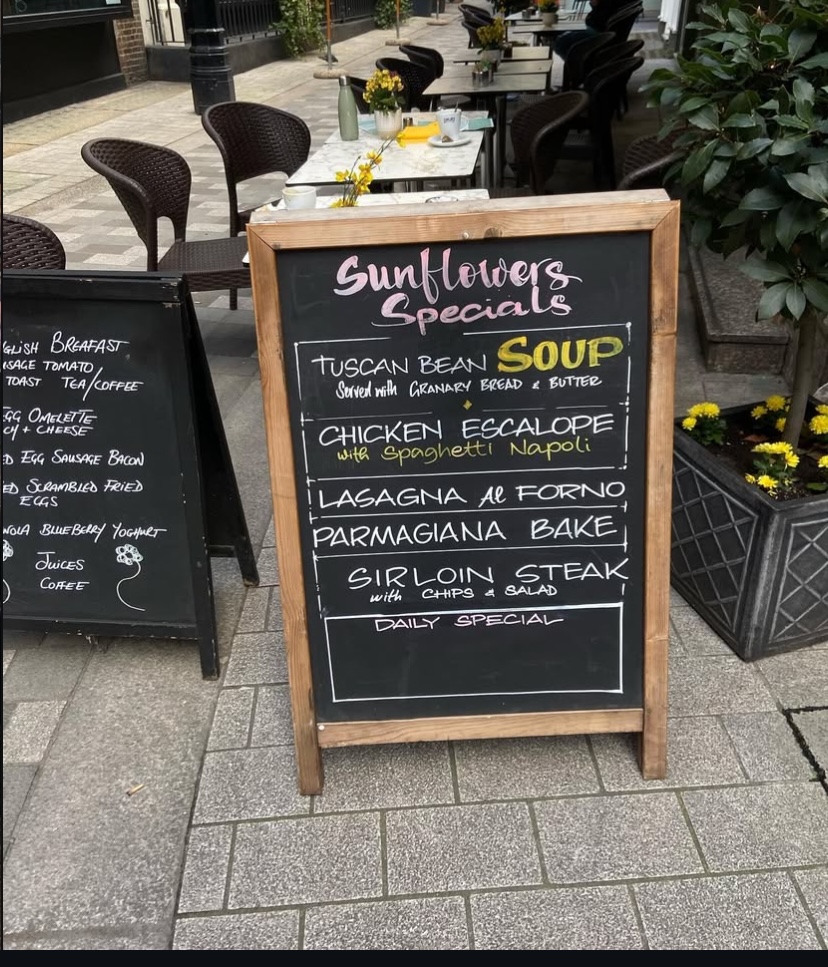 GLISH BREAFAST
SAGE TOMATO
TOAST TEA/COFFEE
EGG OMELETTE
+ CHEESE
ED EGG SAUSAGE BACON
ED SCRAMBLED FRIED
EGGS
NOLA BLUEBERRY YOGHURT
JUICES
COFFEE
Sunflowers
Specials
TUSCAN BEAN SOUP
Served with GRANARY BREAD & BUTTER
CHICKEN ESCALOPE
with Spaghetti Napoli
LASAGNA Al FORNO
PARMAGIANA BAKE
SIRLOIN STEAK
with CHIPS & SALAD
DAILY SPECIAL